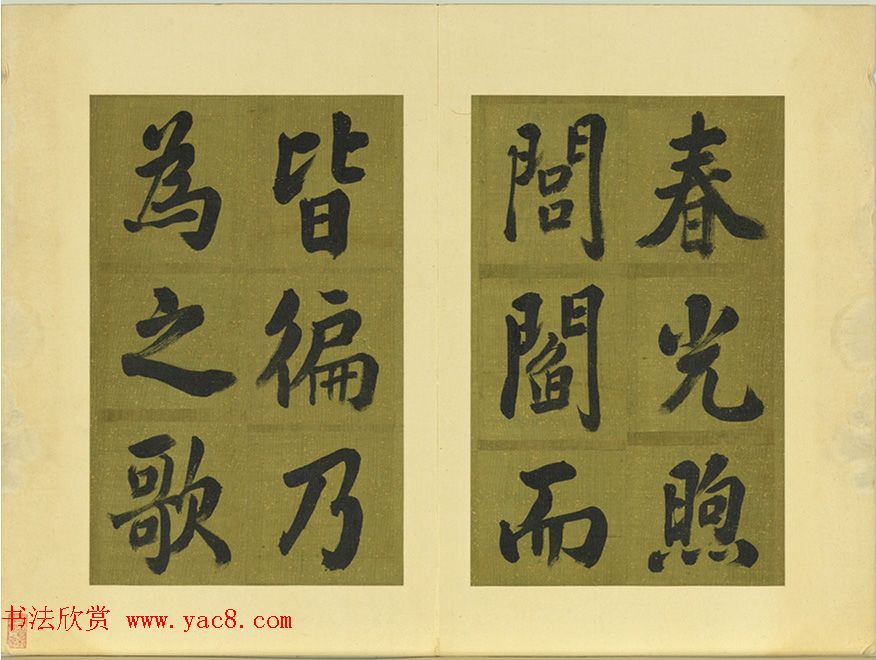 春光煦
閭閻而
皆徧乃
為之歌
书法欣赏 www.yac8.com